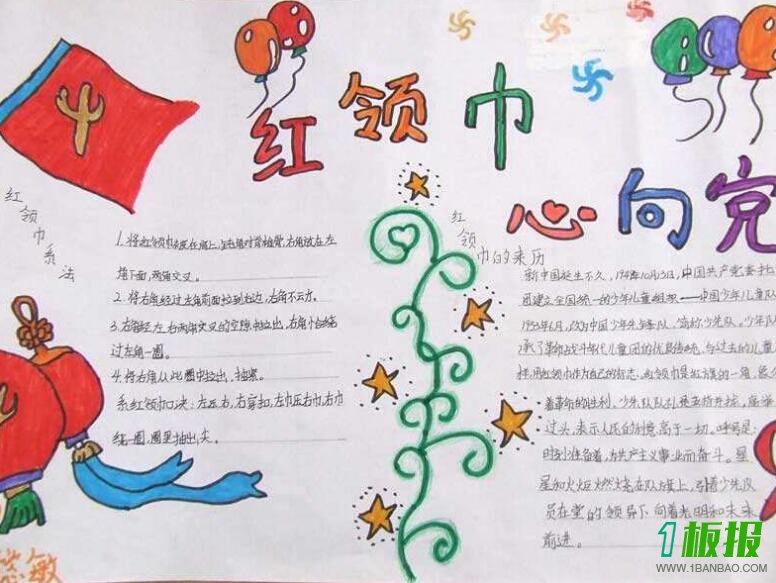 红领巾
心向党
红领巾系法
1.将红领巾披在肩上,
右角放在左
角下面,两角交叉。
2.将右角经过左角前面拉到右边,右角不动。
3.右角经左、右两角交叉的空隙中拉出,右角
过左角一圈。
4.将右角从此圈中拉出,抽紧。
系红领巾口决:左压右,右穿扣,左巾压右巾,右巾
绕一圈,圈里抽出尖。
红领巾的来历
新中国诞生不久,1949年10月13日,中国共产党
团建立全国统一的少年儿童组织——中国少年儿童队
1953年6月,改为中国少年先锋队,简称少先队。少年队
承了革命战斗年代儿童团的优良传统,与过去的儿童
样,用红领巾作为自己的标志,红领巾是红旗的一角,
着革命的胜利,少先队队礼是五指并拢,
过头,表示人民的利益高于一切。呼号是:
时刻准备着,为共产主义事业而奋斗。星
星和火炬燃烧在队旗上,引着少先队
员在党的领导下向着光明和未来
前进。
敏
1板报
WWW.1BANBAO.COM